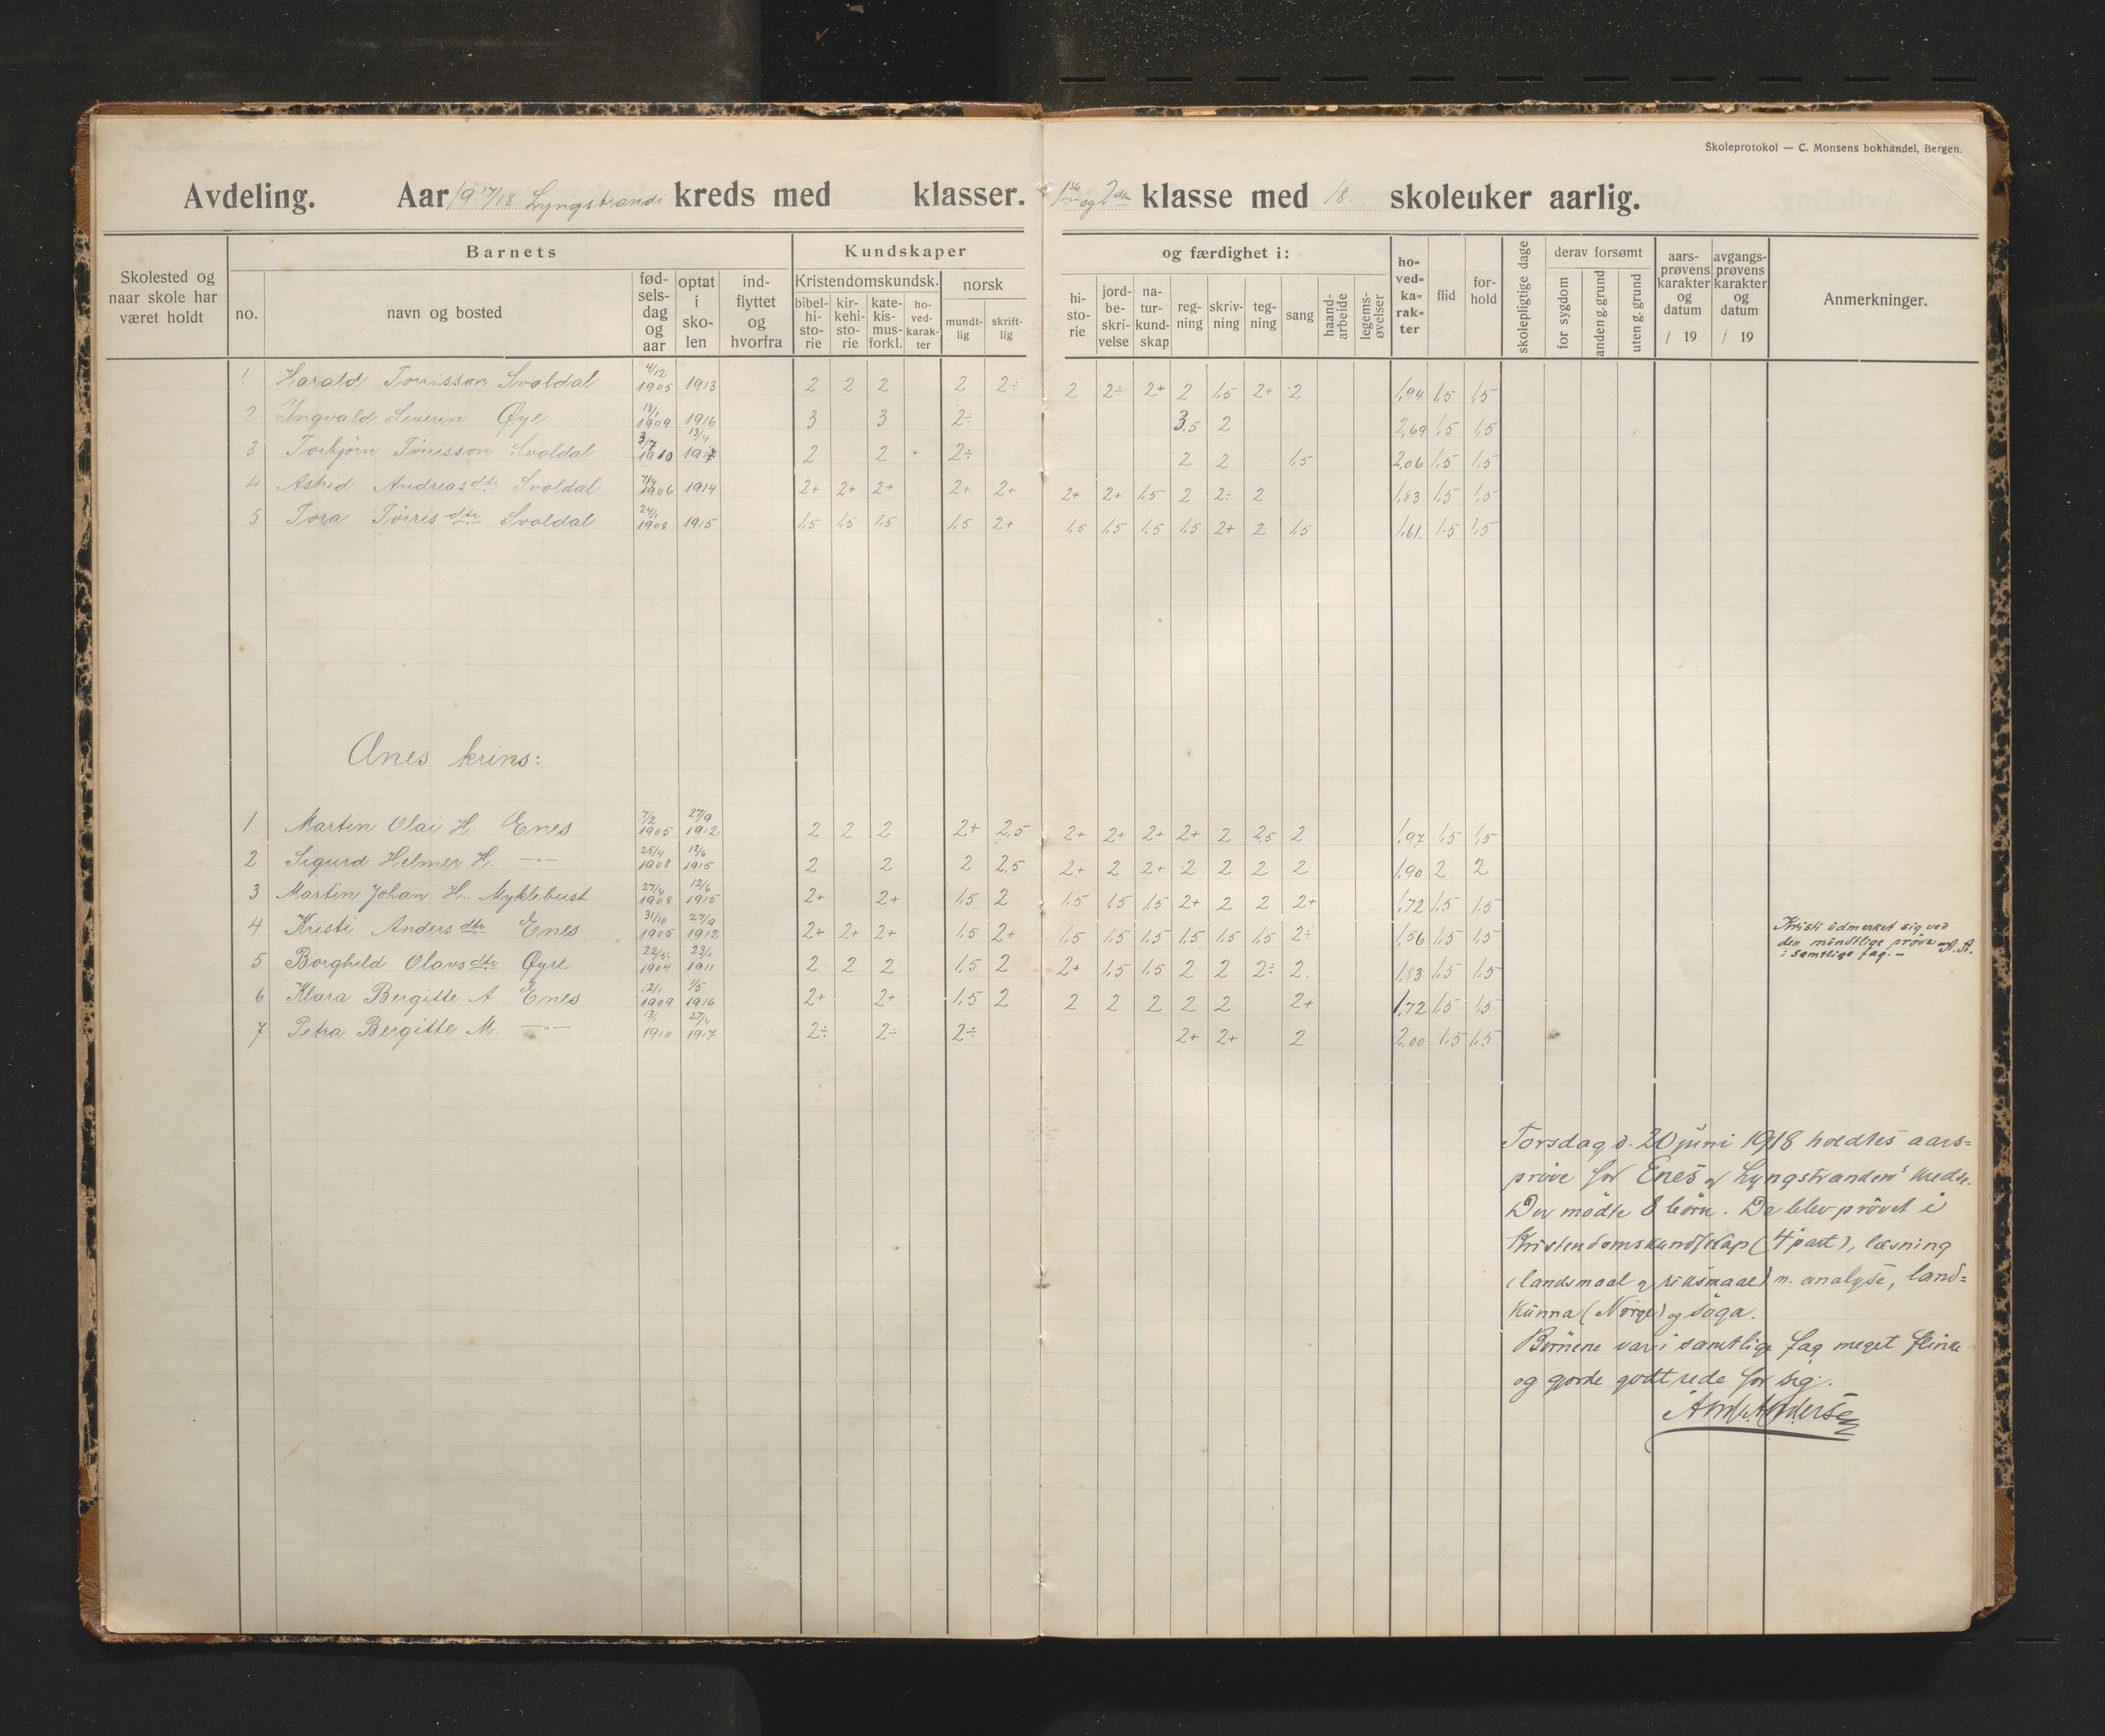 Skoleprotokol — C. Monsens bokhandel, Bergen.
Avdeling. Aar 1917/18 Lyngstrandi kreds med klasser. 1ste og 2den klasse med 18 skoleuker aarlig.
Skolested og naar skole har været holdt
Barnets
no.
navn og bosted
fød-selsdag og aar
optat i sko-len
ind-flyttet og hvorfra
Kundskaper
Kristendomskundsk.
bibel-hi-sto-rie
kir-kehi-sto-rie
kate-kis-mus-forkl.
ho-ved-karak-ter
norsk
mundt-lig
skrift-lig
og færdighet i:
hi-sto-rie
jord-be-skri-velse
na-tur-kund-skap
reg-ning
skriv-ning
teg-ning
sang
haand-arbeide
legems-øvelser
ho-ved-ka-rak-ter
flid
for-hold
skolepligtige dage
derav forsømt
for sygdom
anden g. grund
uten g. grund
aars-prøvens karakter og datum / 19
avgangs-prøvens karakter og datum / 19
Anmerkninger.
1 Harald Torrisson Svoldal 4/12 1905 1913 2 2 2 2 2÷ 2 2÷ 2+ 2 1,5 2+ 2 1,94 1,5 1,5
2 Ingvald Severin Øye 18/1 1909 1916 3 3 2÷ 3,5 2 2,69 1,5 1,5
3 Torbjørn Tørrisson Svoldal 3/7 1910 13/4 1917 2 2 2÷ 2 2 1,5 2,06 1,5 1,5
4 Astrid Andreasdtr Svoldal 7/4 1906 1914 2+ 2+ 2+ 2+ 2+ 2+ 2+ 1,5 2 2÷ 2 1,83 1,5 1,5
5 Tora Tørrisdtr Svoldal 24/1 1908 1915 1,5 1,5 1,5 1,5 2+ 1,5 1,5 1,5 1,5 2+ 2 1,5 1,61 1,5 1,5
Ænes krins:
1 Martin Olai H. Enes 7/2 1905 27/9 1912 2 2 2 2+ 2,5 2+ 2+ 2+ 2+ 2 2,5 2 1,97 1,5 1,5
2 Sigurd Helmer H. —"— 25/4 1908 12/6 1915 2 2 2 2,5 2+ 2 2+ 2 2 2 2 1,90 2 2
3 Martin Johan H. Myklebust 27/4 1908 12/6 1915 2+ 2+ 1,5 2 1,5 1,5 1,5 2+ 2 2 2+ 1,72 1,5 1,5
4 Kristi Andersdtr Enes 31/10 1905 27/9 1912 2+ 2+ 2+ 1,5 2+ 1,5 1,5 1,5 1,5 1,5 1,5 2÷ 1,56 1,5 1,5 Kristi udmerket sig ved
den mündtlige prøve
i samtlige fag. — A.A.
5 Borghild Olavsdtr Øyre 22/5 1904 1911 2 2 2 1,5 2 2+ 1,5 1,5 2 2 2÷ 2. 1,83 1,5 1,5
6 Klara Bergitte A. Enes 12/1 1909 1/5 1916 2+ 2+ 1,5 2 2 2 2 2 2 2+ 1,72 1,5 1,5
7 Petra Bergitte M. —"— 13/1 1910 27/4 1917 2÷ 2÷ 2÷ 2+ 2+ 2 2,00 1,5 1,5
Torsdag d. 20 juni 1918 holdtes aars=
prøve for Enes og Lyngstranden kredse.
Der mødte 8 børn. De blev prøvet i
Kristendomskundskap (4 part), læsning
(landsmaal og riksmaal) m. analyse, land=
kunna (Norge) og soga.
Børnene var i samtlige fag meget flinke
og gjorde godt rede for sig.
Andersen